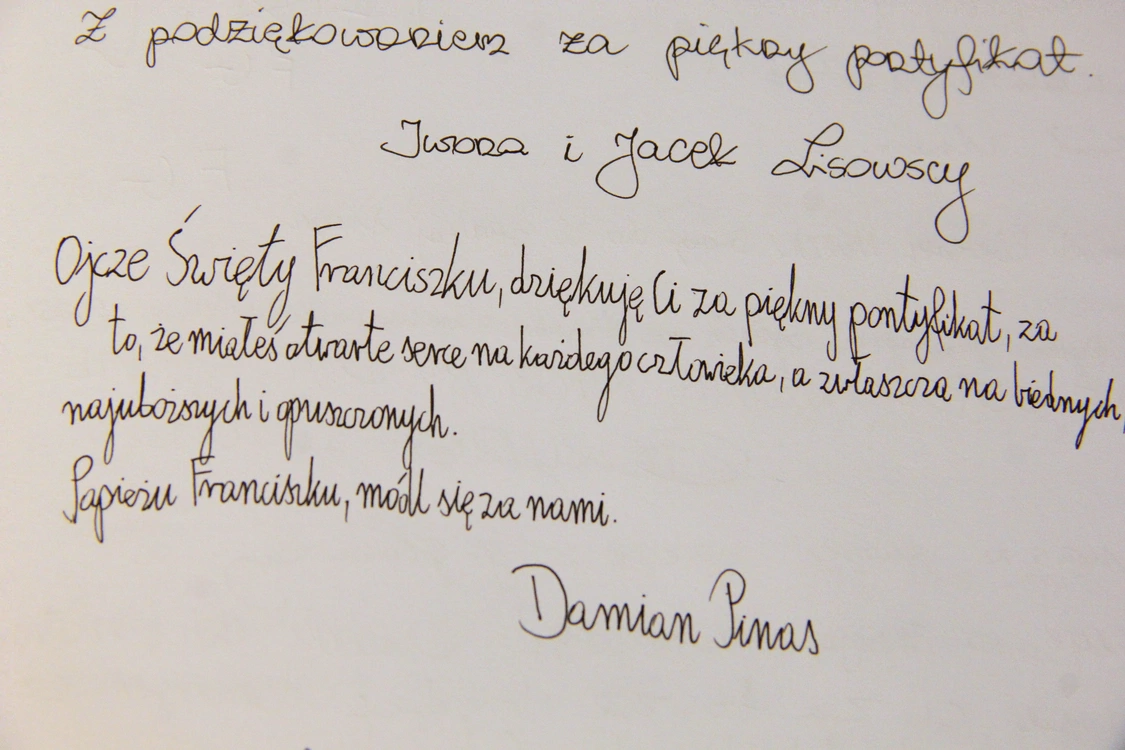 Z podziękowaniem za piękny pontyfikat.
Iwona i Jacek Lisowscy
Ojcze Święty Franciszku, dziękuję Ci za piękny pontyfikat, za
to, że miałeś otwarte serce na każdego człowieka, a zwłaszcza na biednych,
najuboższych i opuszczonych.
Papieżu Franciszku, módl się za nami.
Damian Pinas